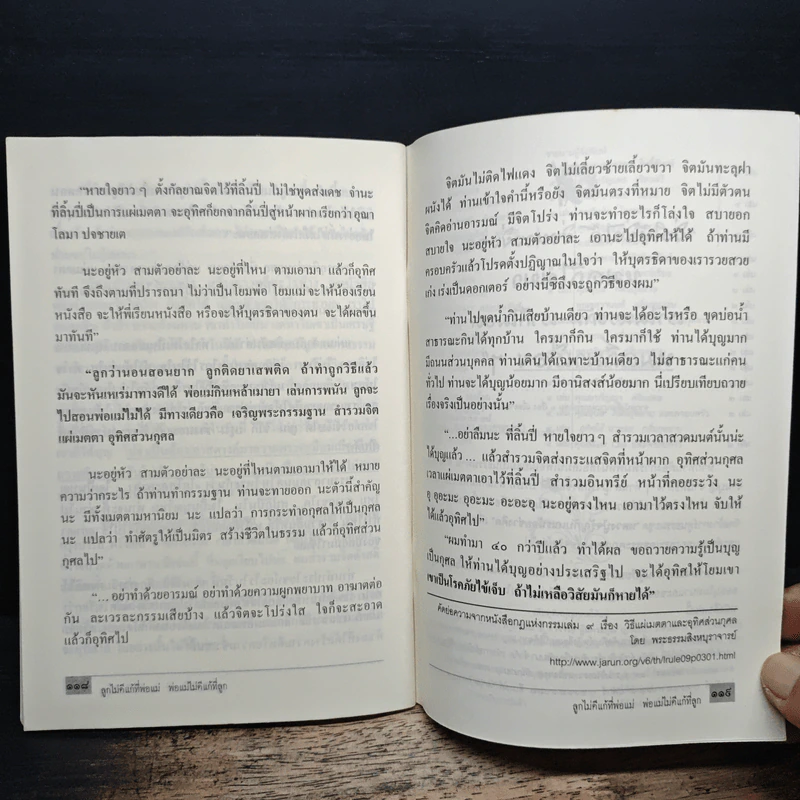 “หายใจยาว ๆ ตั้งกัลยาณจิตไว้ที่ลิ้นปี่ ไม่ใช่พูดส่งเดช จำนะ
ที่ลิ้นปี่เป็นการแผ่เมตตา จะอุทิศก็ยกจากลิ้นปี่สู่หน้าผาก เรียกว่า อุณา
โลมา ปจชายเต
นะอยู่หัว สามตัวอย่าละ นะอยู่ที่ไหน ตามเอามา แล้วก็อุทิศ
ทันที จึงถึงตามที่ปรารถนา ไม่ว่าเป็นโยมพ่อ โยมแม่ จะให้น้องเรียน
หนังสือ จะให้พี่เรียนหนังสือ หรือจะให้บุตรธิดาของตน จะได้ผลขึ้น
มาทันที”
“ลูกว่านอนสอนยาก ลูกติดยาเสพติด ถ้าทำถูกวิธีแล้ว
มันจะหันเหเร่มาทางดีได้ พ่อแม่กินเหล้าเมายา เล่นการพนัน ลูกจะ
ไปสอนพ่อแม่ไม่ได้ มีทางเดียวคือ เจริญพระกรรมฐาน สำรวมจิต
แผ่เมตตา อุทิศส่วนกุศล
นะอยู่หัว สามตัวอย่าละ นะอยู่ที่ไหนตามเอามาให้ได้ หมาย
ความว่ากระไร ถ้าท่านทำกรรมฐาน ท่านจะทายออก นะตัวนี้สำคัญ
นะ มีทั้งเมตตามหานิยม นะ แปลว่า การกระทำอกุศลให้เป็นกุศล
นะ แปลว่า ทำศัตรูให้เป็นมิตร สร้างชีวิตในธรรม แล้วก็อุทิศส่วน
กุศลไป”
“... อย่าทำด้วยอารมณ์ อย่าทำด้วยความผูกพยาบาท อาฆาตต่อ
กัน ละเวรละกรรมเสียบ้าง แล้วจิตจะโปร่งใส ใจก็จะสะอาด
แล้วก็อุทิศไป
๑๑๘ ลูกไม่ดีแก้ที่พ่อแม่ พ่อแม่ไม่ดีแก้ที่ลูก
จิตมันไม่ติดไฟแดง จิตไม่เลี้ยวซ้ายเลี้ยวขวา จิตมันทะลุฝา
ผนังได้ ท่านเข้าใจคำนี้หรือยัง จิตมันตรงที่หมาย จิตไม่มีตัวตน
จิตคิดอ่านอารมณ์ มีจิตโปร่ง ท่านจะทำอะไรก็โล่งใจ สบายอก
สบายใจ นะอยู่หัว สามตัวอย่าละ เอานะไปอุทิศให้ได้ ถ้าท่านมี
ครอบครัวแล้วโปรดตั้งปฏิญาณในใจว่า ให้บุตรธิดาของเรารวยสวย
เก่ง เร่งเป็นดอกเตอร์ อย่างนี้ซิถึงจะถูกวิธีของผม”
“ท่านไปขุดน้ำกินเสียบ้านเดียว ท่านจะได้อะไรหรือ ขุดบ่อน้ำ
สาธารณะกินได้ทุกบ้าน ใครมาก็กิน ใครมาก็ใช้ ท่านได้บุญมาก
มีถนนส่วนบุคคล ท่านเดินได้เฉพาะบ้านเดียว ไม่สาธารณะแก่คน
ทั่วไป ท่านจะได้บุญน้อยมาก มีอานิสงส์น้อยมาก นี่เปรียบเทียบถวาย
เรื่องจริงเป็นอย่างนั้น”
“...อย่าลืมนะ ที่ลิ้นปี่ หายใจยาว ๆ สำรวมเวลาสวดมนต์นั้นน่ะ
ได้บุญแล้ว ... แล้วสำรวมจิตส่งกระแสจิตที่หน้าผาก อุทิศส่วนกุศล
เวลาแผ่เมตตาเอาไว้ที่ลิ้นปี่ สำรวมอินทรีย์ หน้าที่คอยระวัง นะ
อุ อุอะมะ อุอะมะ อะอะอุ นะอยู่ตรงไหน เอามาไว้ตรงไหน จับให้
ได้แล้วอุทิศไป”
“ผมทำมา ๔๐ กว่าปีแล้ว ทำได้ผล ขอถวายความรู้เป็นบุญ
เป็นกุศล ให้ท่านได้บุญอย่างประเสริฐไป จะได้อุทิศให้โยมเขา
เขาเป็นโรคภัยไข้เจ็บ ถ้าไม่เหลือวิสัยมันก็หายได้”
คัดย่อความจากหนังสือกฎแห่งกรรมเล่ม ๙ เรื่อง วิธีแผ่เมตตาและอุทิศส่วนกุศล
โดย พระธรรมสิงหบุราจารย์
http://www.jarun.org/v6/th/lrule09p0301.html
ลูกไม่ดีแก้ที่พ่อแม่ พ่อแม่ไม่ดีแก้ที่ลูก ๑๑๙